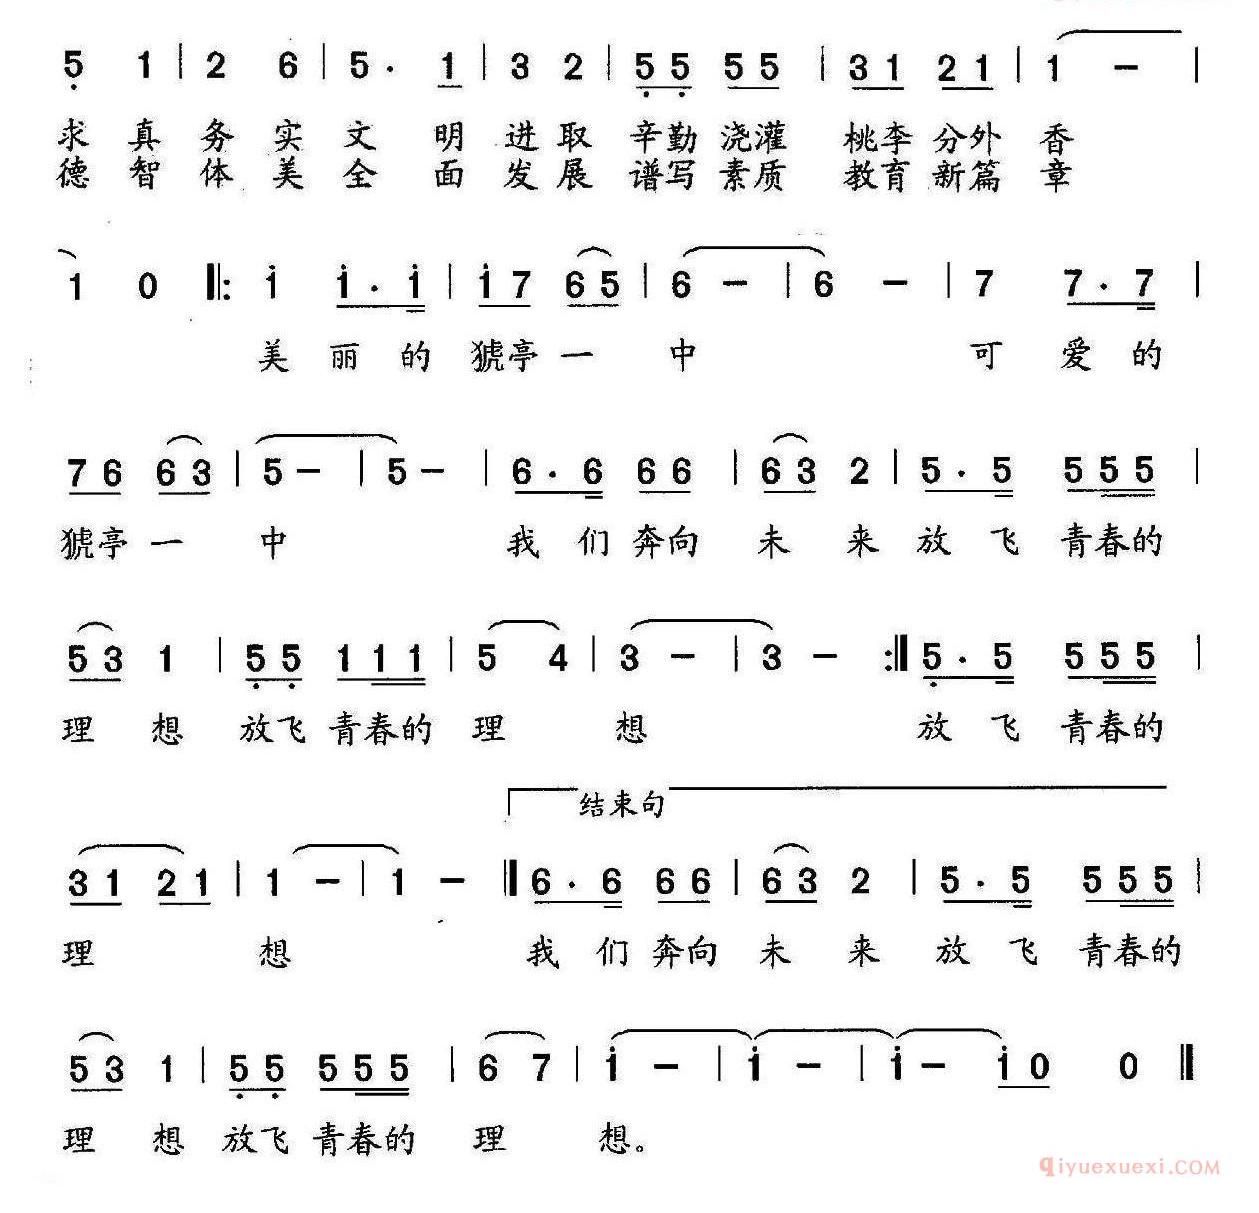 5 1 | 2 6 | 5· 1 | 3 2 | 5 5 5 5 | 3 1 2 1 | 1 - |
求真务实文明进取辛勤浇灌桃李分外香
德智体美全面发展谱写素质教育新篇章
1 0 ‖: i i· i | i 7 6 5 | 6 - | 6 - | 7 7· 7 |
美丽的猇亭一中可爱的
7 6 6 3 | 5 - | 5 - | 6· 6 6 6 | 6 3 2 | 5· 5 5 5 5 |
猇亭一中我们奔向未来放飞青春的
5 3 1 | 5 5 1 1 1 | 5 4 | 3 - | 3 - :‖ 5· 5 5 5 5 |
理想放飞青春的理想放飞青春的
结束句
3 1 2 1 | 1 - | 1 - ‖ 6· 6 6 6 | 6 3 2 | 5· 5 5 5 5 |
理想我们奔向未来放飞青春的
5 3 1 | 5 5 5 5 5 | 6 7 | i - | i - | i - | i 0 0 ‖
理想放飞青春的理想。
qiyuexuexi.COM